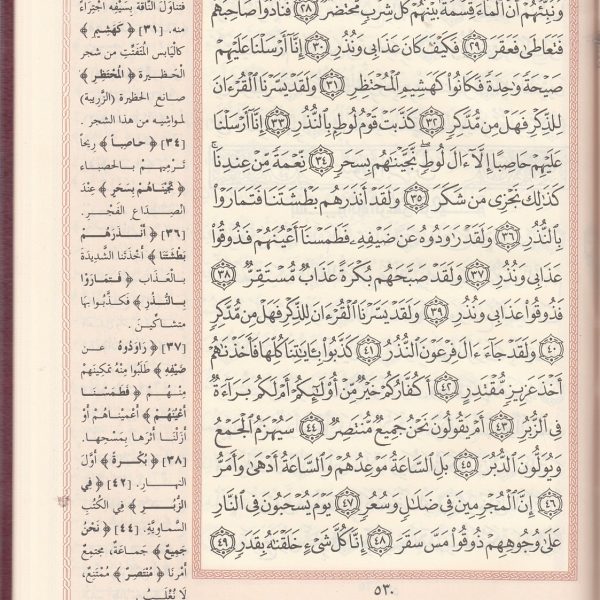 وَنَبِّئْهُمْ أَنَّ ٱلْمَآءَ قِسْمَةٌۢ بَيْنَهُمْ كُلُّ شِرْبٍ مُّحْتَضَرٌ ﴿٢٨﴾ فَنَادَوْا۟ صَاحِبَهُمْ
فَتَعَاطَىٰ فَعَقَرَ ﴿٢٩﴾ فَكَيْفَ كَانَ عَذَابِى وَنُذُرِ ﴿٣٠﴾ إِنَّآ أَرْسَلْنَا عَلَيْهِمْ
صَيْحَةً وَٰحِدَةً فَكَانُوا۟ كَهَشِيمِ ٱلْمُحْتَظِرِ ﴿٣١﴾ وَلَقَدْ يَسَّرْنَا ٱلْقُرْءَانَ
لِلذِّكْرِ فَهَلْ مِن مُّدَّكِرٍ ﴿٣٢﴾ كَذَّبَتْ قَوْمُ لُوطٍۭ بِٱلنُّذُرِ ﴿٣٣﴾ إِنَّآ أَرْسَلْنَا
عَلَيْهِمْ حَاصِبًا إِلَّآ ءَالَ لُوطٍ ۖ نَّجَّيْنَٰهُم بِسَحَرٍ ﴿٣٤﴾ نِّعْمَةً مِّنْ عِندِنَا ۚ
كَذَٰلِكَ نَجْزِى مَن شَكَرَ ﴿٣٥﴾ وَلَقَدْ أَنذَرَهُم بَطْشَتَنَا فَتَمَارَوْا۟
بِٱلنُّذُرِ ﴿٣٦﴾ وَلَقَدْ رَٰوَدُوهُ عَن ضَيْفِهِۦ فَطَمَسْنَآ أَعْيُنَهُمْ فَذُوقُوا۟
عَذَابِى وَنُذُرِ ﴿٣٧﴾ وَلَقَدْ صَبَّحَهُم بُكْرَةً عَذَابٌ مُّسْتَقِرٌّ ﴿٣٨﴾
فَذُوقُوا۟ عَذَابِى وَنُذُرِ ﴿٣٩﴾ وَلَقَدْ يَسَّرْنَا ٱلْقُرْءَانَ لِلذِّكْرِ فَهَلْ مِن مُّدَّكِرٍ
﴿٤٠﴾ وَلَقَدْ جَآءَ ءَالَ فِرْعَوْنَ ٱلنُّذُرُ ﴿٤١﴾ كَذَّبُوا۟ بِـَٔايَٰتِنَا كُلِّهَا فَأَخَذْنَٰهُمْ
أَخْذَ عَزِيزٍ مُّقْتَدِرٍ ﴿٤٢﴾ أَكُفَّارُكُمْ خَيْرٌ مِّنْ أُو۟لَٰٓئِكُمْ أَمْ لَكُم بَرَآءَةٌ
فِى ٱلزُّبُرِ ﴿٤٣﴾ أَمْ يَقُولُونَ نَحْنُ جَمِيعٌ مُّنتَصِرٌ ﴿٤٤﴾ سَيُهْزَمُ ٱلْجَمْعُ
وَيُوَلُّونَ ٱلدُّبُرَ ﴿٤٥﴾ بَلِ ٱلسَّاعَةُ مَوْعِدُهُمْ وَٱلسَّاعَةُ أَدْهَىٰ وَأَمَرُّ
﴿٤٦﴾ إِنَّ ٱلْمُجْرِمِينَ فِى ضَلَٰلٍ وَسُعُرٍ ﴿٤٧﴾ يَوْمَ يُسْحَبُونَ فِى ٱلنَّارِ
عَلَىٰ وُجُوهِهِمْ ذُوقُوا۟ مَسَّ سَقَرَ ﴿٤٨﴾ إِنَّا كُلَّ شَىْءٍ خَلَقْنَٰهُ بِقَدَرٍ ﴿٤٩﴾
٥٣٠
فتناول الناقة بسيفه اجتراءً
منه. [٣١] ﴿كَهَشِيمِ﴾
كاليابس المُتَفَتِّت من شجر
الحَظيرة ﴿المُحْتَظِرِ﴾
صانع الحظيرة (الزَّريبة)
لمواشيه من هذا الشجر.
[٣٤] ﴿حاصِباً﴾ ريحاً
تَرْميهم بالحصباء
﴿نَجَّيْناهُمْ بِسَحَرٍ﴾ عِنْدَ
انْصِداع الفَجْر.
[٣٦] ﴿أَنْذَرَهُمْ
بَطْشَتَنا﴾ أَخْذَتَنا الشَّديدةَ
بالعَذاب ﴿فَتَمارَوْا
بِالنُّذُرِ﴾ فكَذَّبُوا بها
متشاكّينَ.
[٣٧] ﴿رَاوَدُوهُ عن
ضَيْفِهِ﴾ طَلَبُوا مِنْهُ تمكينَهم
مِنْهُمْ ﴿فَطَمَسْنا
أَعْيُنَهُمْ﴾ أعْمَيناهُمْ أوْ
أزَلْنا أثَرَها بِمَسْحِها.
[٣٨] ﴿بُكْرَةً﴾ أوَّلَ
النهار. [٤٢] ﴿فِي
الزُّبُرِ﴾ في الكُتُبِ
السَّماويَّةِ. [٤٤] ﴿نَحْنُ
جَمِيعٌ﴾ جَماعَةٌ، مجتمِعٌ
أمْرُنا ﴿مُنْتَصِرٌ﴾ مُمْتَنِعٌ،
لا نُغْلَبُ.